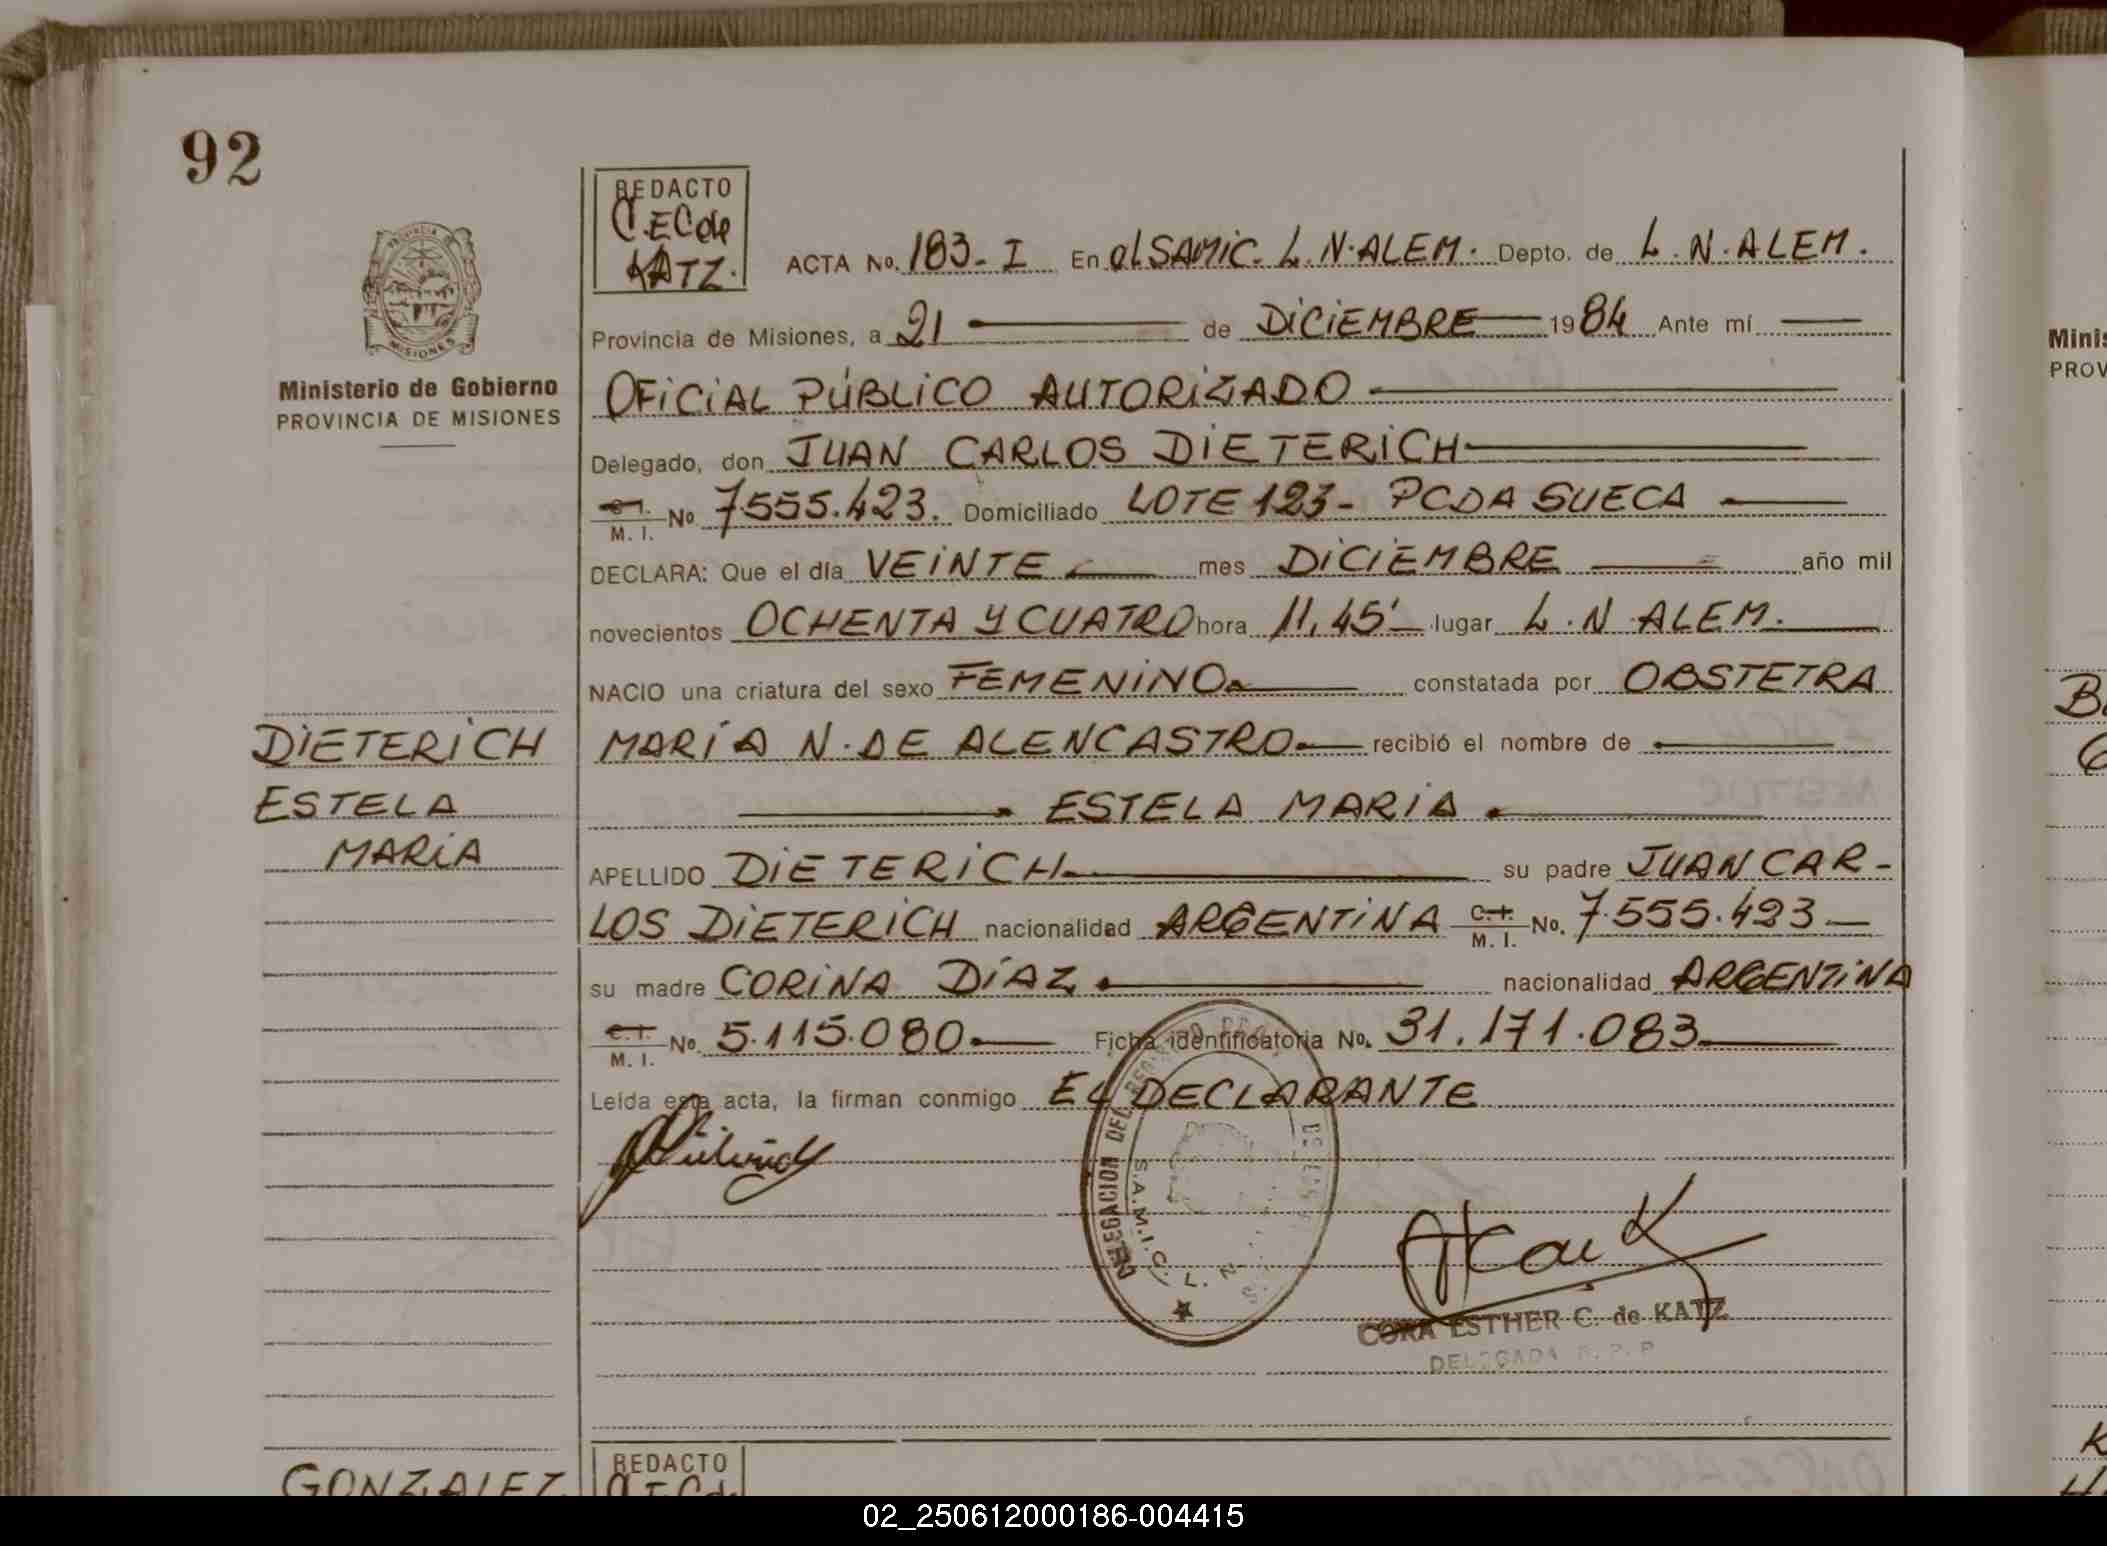 92
REDACTO
C.E C de
KATZ.
ACTA No. 183-I En el SAMIC. L.N.ALEM. Depto. de L.N.ALEM.
Provincia de Misiones, a 21 de DICIEMBRE 1984 Ante mí
Ministerio de Gobierno
PROVINCIA DE MISIONES
OFICIAL PÚBLICO AUTORIZADO
Delegado, don JUAN CARLOS DIETERICH
C.I. M. I. No 7.555.423. Domiciliado LOTE 123- PCDA SUECA
DECLARA: Que el día VEINTE mes DICIEMBRE año mil
novecientos OCHENTA Y CUATRO hora 11,45' lugar L.N ALEM.
NACIO una criatura del sexo FEMENINO constatada por OBSTETRA
MARÍA N. DE ALENCASTRO recibió el nombre de
ESTELA MARÍA
DIETERICH
ESTELA
MARÍA
APELLIDO DIETERICH su padre JUAN CAR-
LOS DIETERICH nacionalidad ARGENTINA C.I. M. I. No. 7.555.423
su madre CORINA DÍAZ nacionalidad ARGENTINA
C.I. M. I. No. 5.115.080 Ficha identificatoria No. 31.171.083
Leída esta acta, la firman conmigo EL DECLARANTE
DELEGACION DEL REGISTRO
S.A.M.I.C. L. N.
CORA ESTHER C. de KATZ
DELEGADA R.P.P
GONZALEZ
REDACTO
C.E C de
02_250612000186-004415